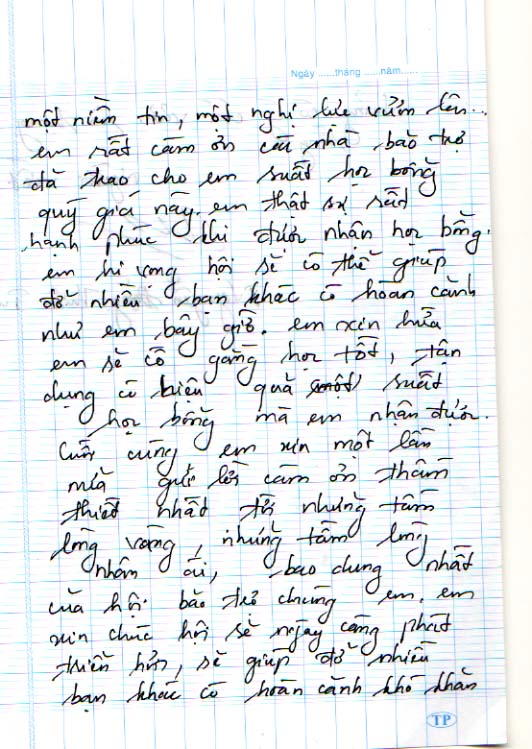 Ngày ......tháng ......năm......
một niềm tin, một nghị lực vươn lên...
em rất cảm ơn các nhà bảo trợ
đã trao cho em suất học bổng
quý giá này. em thật sự rất
hạnh phúc khi được nhận học bổng.
em hi vọng hội sẽ có thể giúp
đỡ nhiều bạn khác có hoàn cảnh
như em bây giờ. em xin hứa
em sẽ cố gắng học tốt, tận
dụng có hiệu quả suất
học bổng mà em nhận được.
Cuối cùng em xin một lần
nữa gửi lời cảm ơn thắm
thiết nhất tới những tấm
lòng vàng, những tấm lòng
nhân ái, bao dung nhất
của hội bảo trợ chúng em. em
xin chúc hội sẽ ngày càng phát
triển hơn, sẽ giúp đỡ nhiều
bạn khác có hoàn cảnh khó khăn
TP